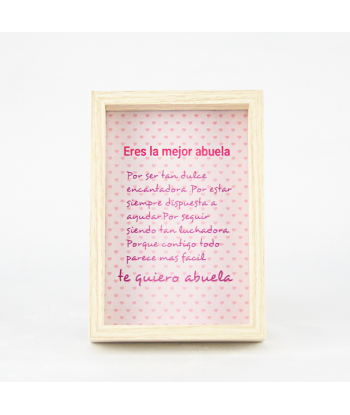 Eres la mejor abuela
Por ser tan dulce
encantadora .Por estar
siempre dispuesta a
ayudar.Por seguir
siendo tan luchadora
Porque contigo todo
parece mas facil
te quiero abuela